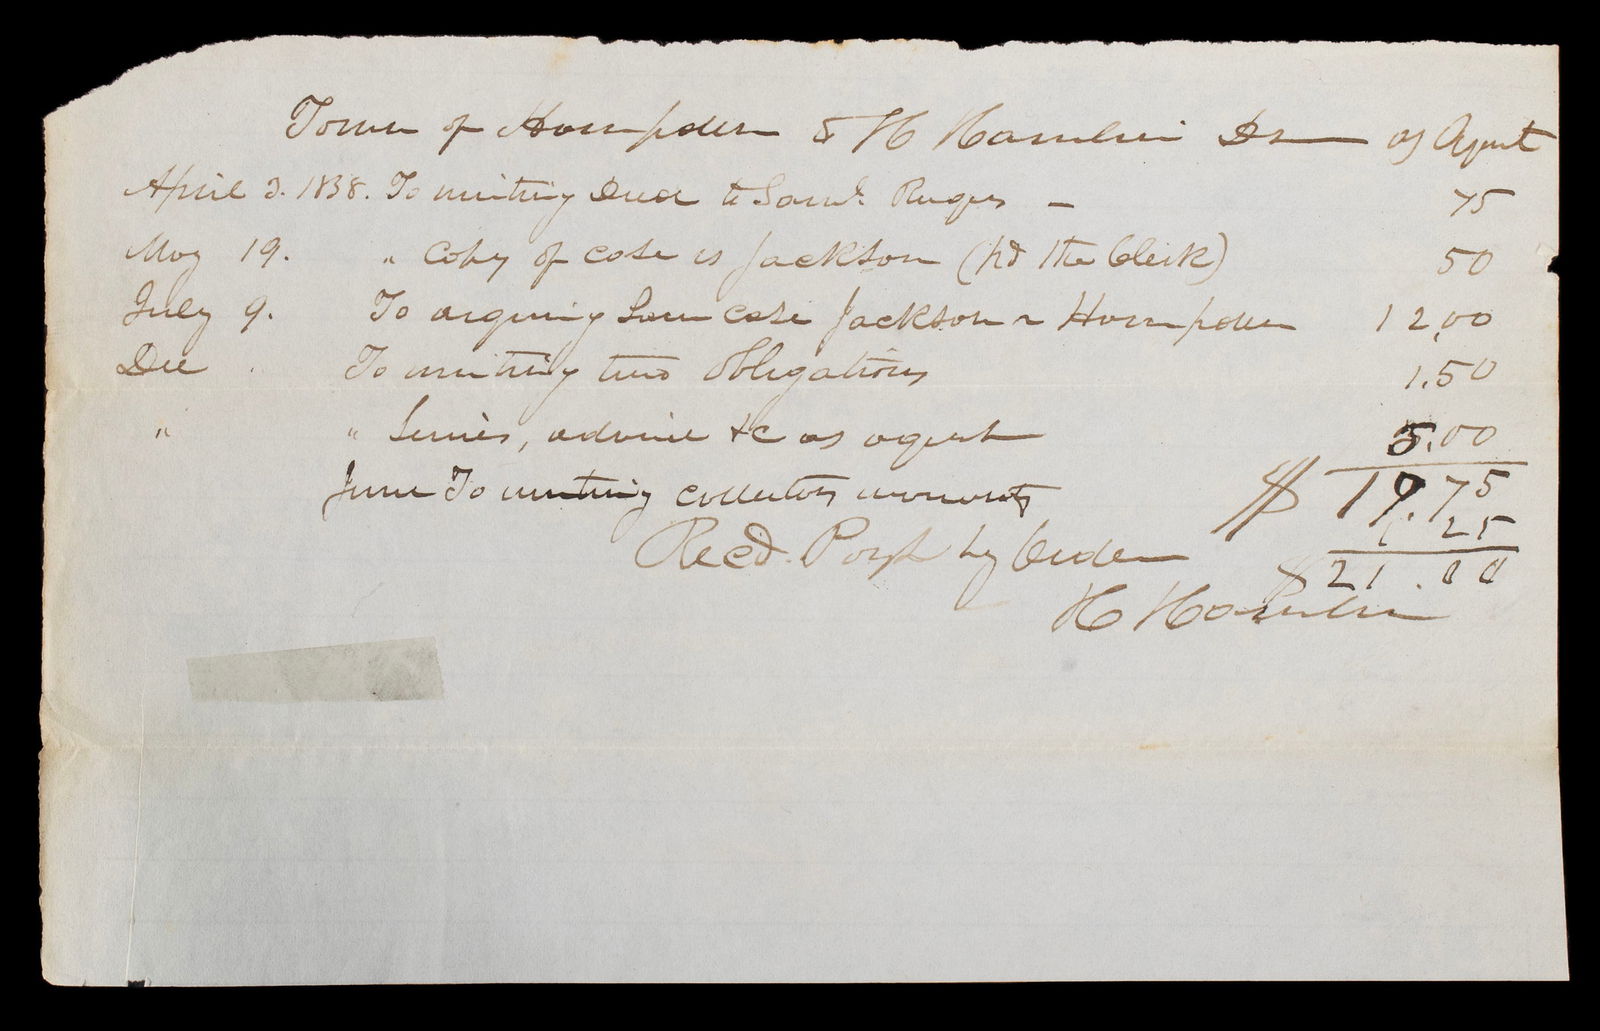 Town of Hampden to H Hamlin Dr as Agent
April 3. 1838. To writing Deed to Saml. Rogers – 75
May 19. " Copy of case vs Jackson (pd the Clerk) 50
July 9. To arguing Same case Jackson v Hampden 12,00
Dec To writing two obligations 1.50
" " Servises, advise &c as agent 5.00
June To writing collectors warrants $ 19.75
1 25
Recd. Payt by Order $21.00
H Hamlin